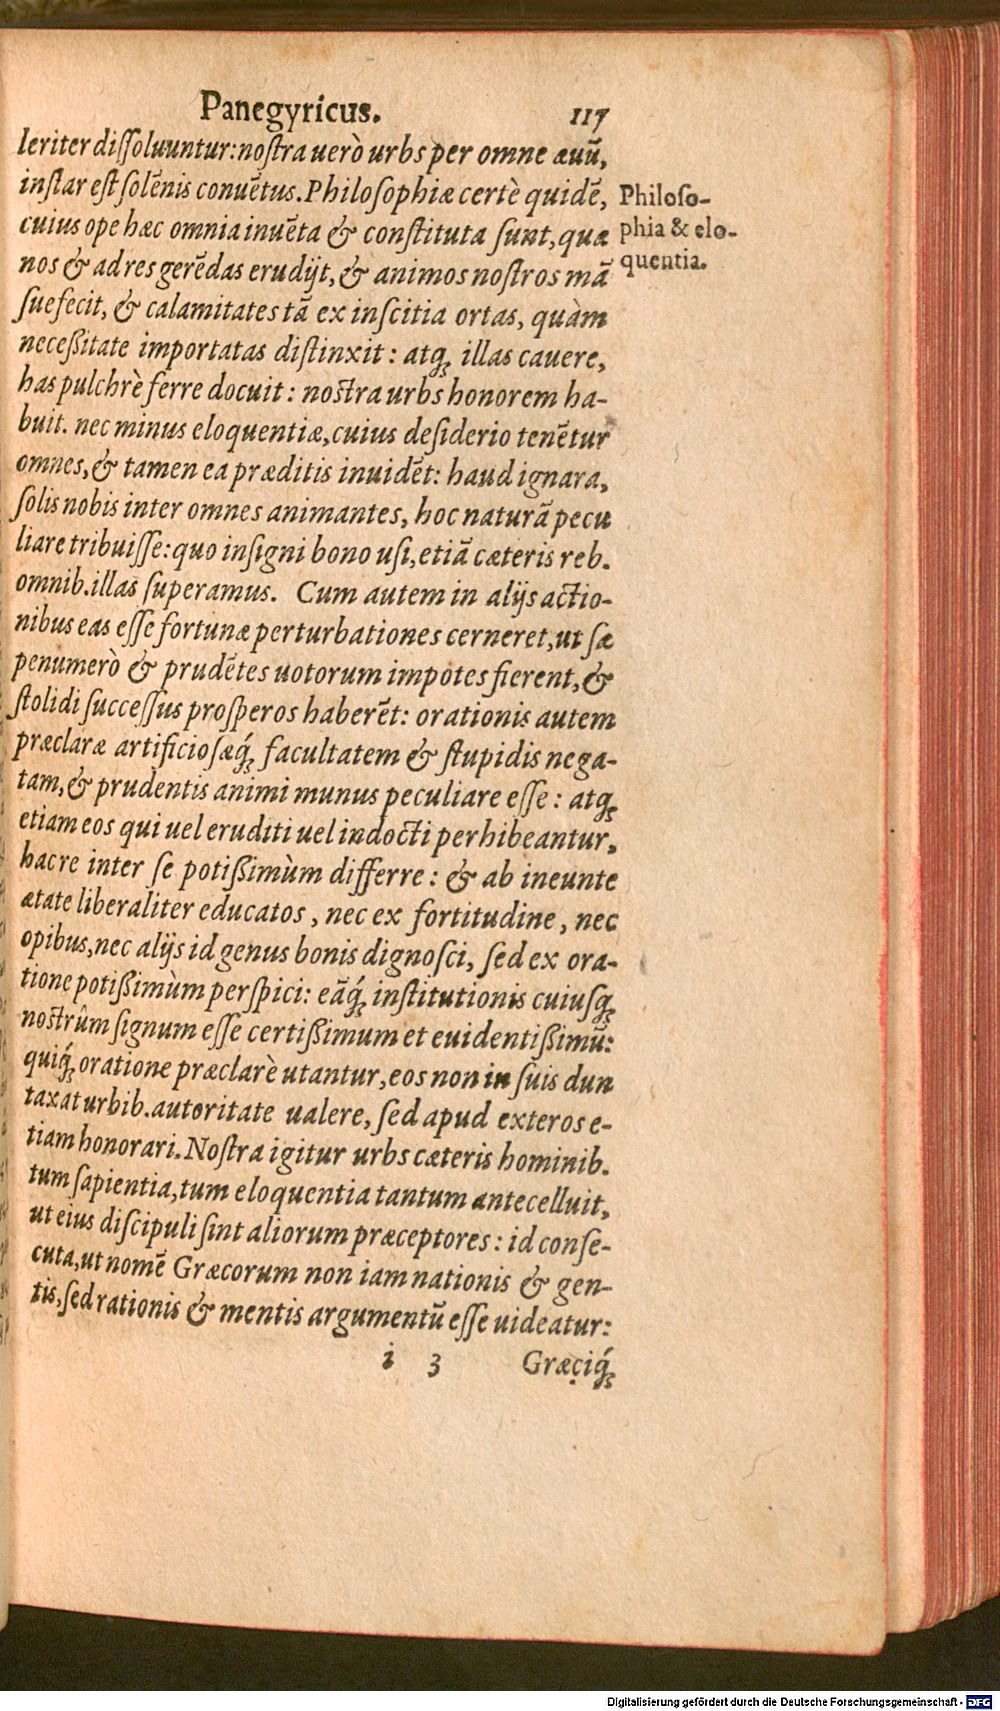 Panegyricus. 117
leriter dissoluuntur: nostra uerò urbs per omne æuū,
instar est solēnis conuētus. Philosophiæ certè quidē,
Philoso-
cuius ope hæc omnia inuēta & constituta sunt, quæ
phia & elo-
nos & ad res gerēdas erudijt, & animos nostros mā
quentia.
suefecit, & calamitates tā ex inscitia ortas, quàm
necessitate importatas distinxit: atq; illas cauere,
has pulchrè ferre docuit: nostra urbs honorem ha-
buit. nec minus eloquentiæ, cuius desiderio tenētur
omnes, & tamen ea præditis inuidēt: haud ignara,
solis nobis inter omnes animantes, hoc naturā pecu
liare tribuisse: quo insigni bono usi, etiā cæteris reb.
omnib. illas superamus. Cum autem in alijs actio-
nibus eas esse fortunæ perturbationes cerneret, ut sæ
penumerò & prudētes uotorum impotes fierent, &
stolidi successus prosperos haberēt: orationis autem
præclaræ artificiosæq́; facultatem & stupidis nega-
tam, & prudentis animi munus peculiare esse: atq;
etiam eos qui uel eruditi uel indocti perhibeantur,
hac re inter se potissimùm differre: & ab ineunte
ætate liberaliter educatos, nec ex fortitudine, nec
opibus, nec alijs id genus bonis dignosci, sed ex ora-
tione potissimùm perspici: eāq́; institutionis cuiusq;
nostrûm signum esse certissimum et euidentissimū:
quiq́; oratione præclarè utantur, eos non in suis dun
taxat urbib. autoritate ualere, sed apud exteros e-
tiam honorari. Nostra igitur urbs cæteris hominib.
tum sapientia, tum eloquentia tantum antecelluit,
ut eius discipuli sint aliorum præceptores: id conse-
cuta, ut nomē Græcorum non iam nationis & gen-
tis, sed rationis & mentis argumentū esse uideatur:
i 3 Græciq́;
Digitalisierung gefördert durch die Deutsche Forschungsgemeinschaft - DFG